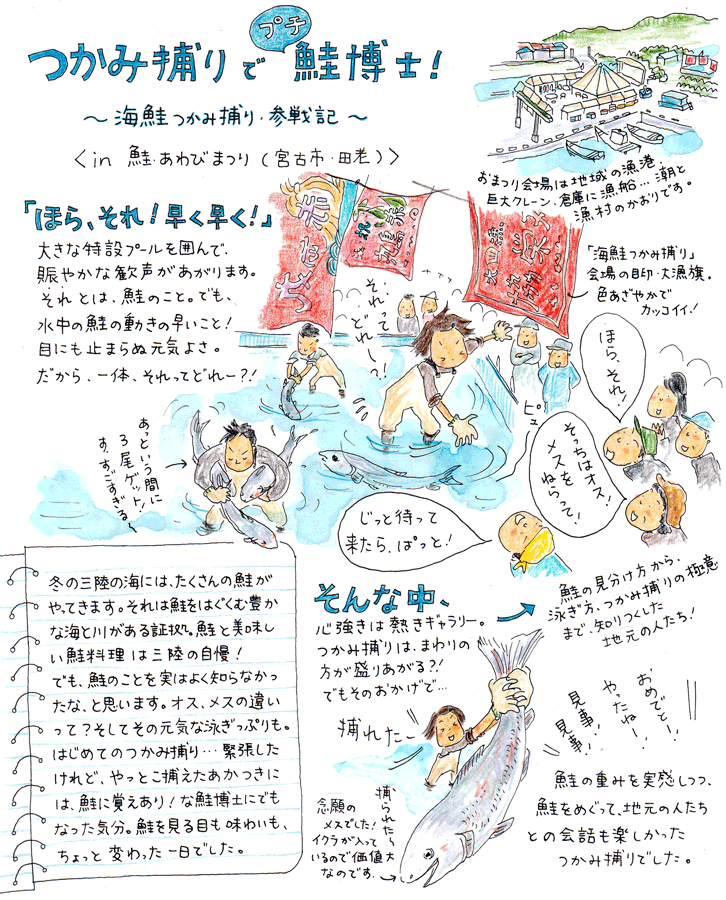 つかみ捕りで
プチ
鮭博士!
～海鮭つかみ捕り・参戦記～
＜in 鮭・あわびまつり(宮古市・田老)＞
おまつり会場は地域の漁港。
巨大クレーン、倉庫に漁船…潮と
漁村のかおりです。
「ほら、それ!早く早く!」
大きな特設プールを囲んで、
賑やかな歓声があがります。
それとは、鮭のこと。でも、
水中の鮭の動きの早いこと!
目にも止まらぬ元気よさ。
だから、一体、それってどれー?!
それって
どれー?!
「海鮭つかみ捕り」
会場の目印・大漁旗。
色あざやかで
カッコイイ!
ほら、それ!
そっちはオス!
メスを
ねらって!
ピュー
あっという間に
3尾ゲット!
す、すごすぎる～
じっと待って
来たら、ぱっと!
冬の三陸の海には、たくさんの鮭が
やってきます。それは鮭をはぐくむ豊か
な海と川がある証拠。鮭と美味し
い鮭料理は三陸の自慢!
でも、鮭のことを実はよく知らなかっ
たな、と思います。オス、メスの違い
って?そしてその元気な泳ぎっぷりも。
はじめてのつかみ捕り…緊張した
けれど、やっとこ捕えたあかつきに
は、鮭に覚えあり!な鮭博士にでも
なった気分。鮭を見る目も味わいも、
ちょっと変わった一日でした。
そんな中、
心強きは熱きギャラリー。
つかみ捕りは、まわりの
方が盛りあがる?!
でもそのおかげで…
鮭の見分け方から、
泳ぎ方、つかみ捕りの極意
まで、知りつくした
地元の人たち!
捕れたー
おめでとー!
やったねー!
見事!
見事!
捕られたら
念願の
メスでした!
イクラが入って
いるので価値大
なのです。
鮭の重みを実感しつつ、
鮭をめぐって、地元の人たち
との会話も楽しかった
つかみ捕りでした。